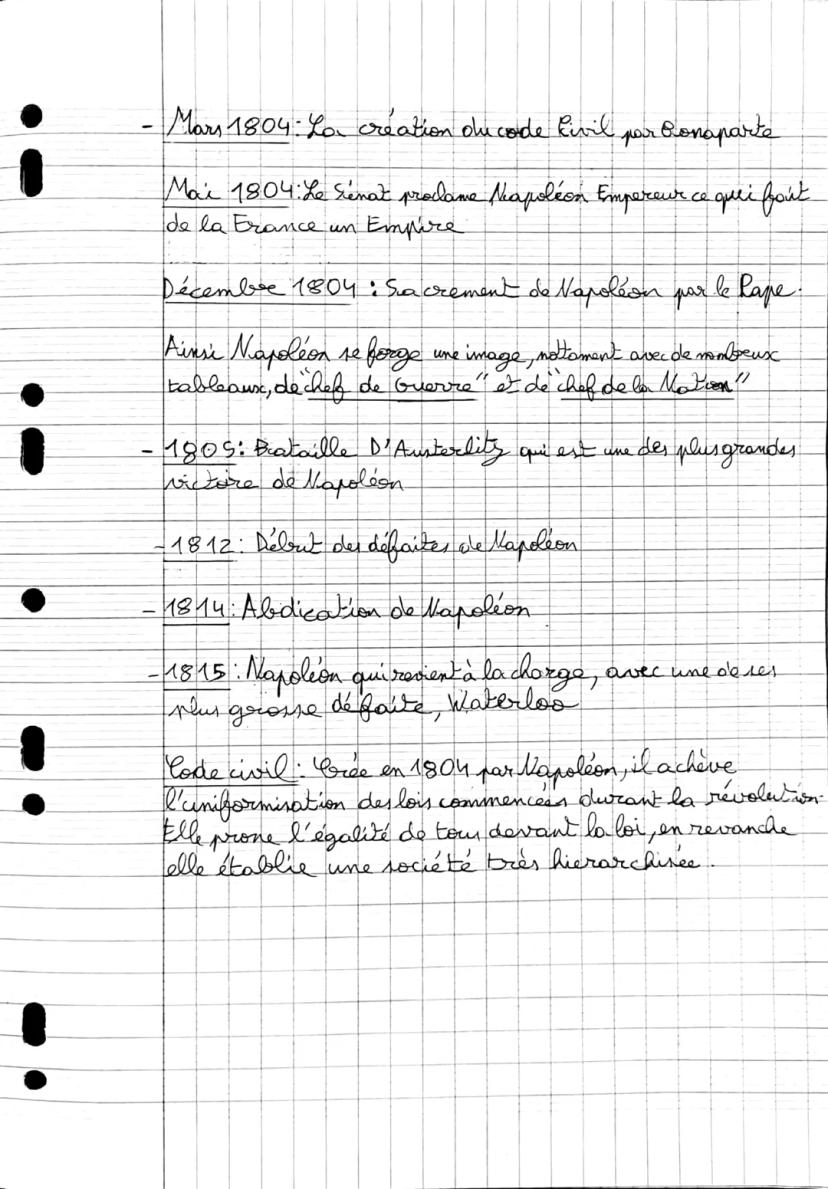 - Mars 1804 : La création du code Civil par Bonaparte
Mai 1804 : Le Sénat proclame Napoléon Empereur ce qui fait
de la France un Empire
Décembre 1804 : Sacrement de Napoléon par le Pape.
Ainsi Napoléon se forge une image, nottament avec de nombreux
tableaux, de "chef de Guerre" et de "chef de la Nation"
- 1805 : Bataille D'Austerlitz qui est une des plus grandes
victoire de Napoléon
- 1812 : Début des défaites de Napoléon
- 1814 : Abdication de Napoléon
- 1815 : Napoléon qui revient à la charge, avec une de ses
plus grosse défaite, Waterloo
Code civil : Crée en 1804 par Napoléon, il achève
l'uniformisation des lois commencées durant la révolution.
Elle prone l'égalité de tous devant la loi, en revanche
elle établie une société très hierarchisée.